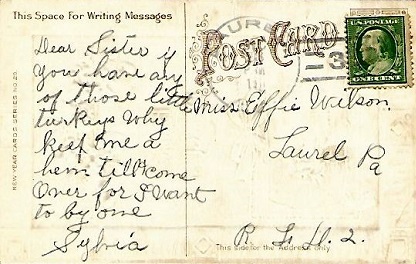 This Space For Writing Messages
POST CARD
U.S. POSTAGE
ONE CENT
3
NEW YEAR CARDS SERIES NO.
Dear Sister if
you have any
of those little
turkeys Why
keep me a
hem till I come
Over for I want
to by one
Sylvia
Miss Effie Wilson
Laurel Pa
R. F. D. 2.
This side for the Address only